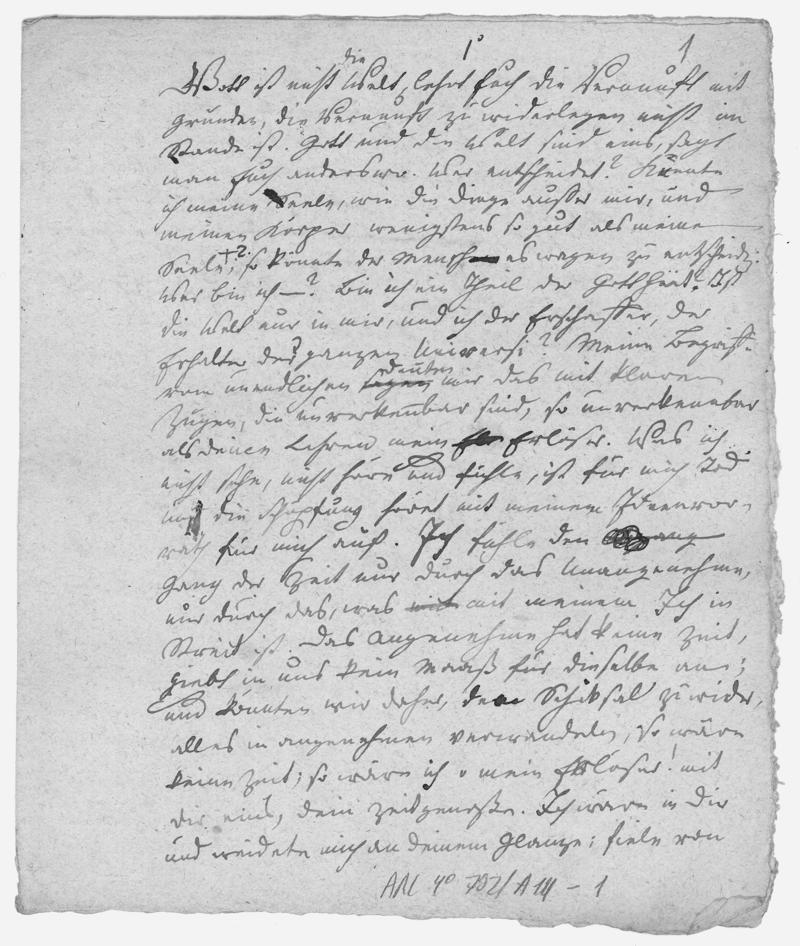 1° 1
die
Gott ist nicht Welt, lehrt Euch die Vernunft mit
Gründen, die Vernunft zu widerlegen nicht im
Stande ist. Gott und die Welt sind eins, sagt
man Euch anderswo. Wer entscheidet? Kennte
ich meine Seele, wie die Dinge ausser mir, und
meinen Körper wenigstens so gut als meine
Seele, so könnte der Mensch es wagen zu entscheiden.
Wer bin ich —? Bin ich ein Theil der Gottheit? Ist
die Welt nur in mir, und ich der Erschaffer, der
Erhalter des ganzen Universi? Meine Begriffe
deuten
vom unendlichen mir das mit klaren
Zügen, die unverkennbar sind, so unverkennbar
als deinen Lehren mein Erlöser. Was ich
nicht sehe, nicht höre und fühle, ist für mich Tod
und die Schöpfung höret mit meinem Ideenvor-
rath für mich auf. Ich fühle den
Gang der Zeit nur durch das Unangenehme,
nur durch das, was mit meinem Ich in
Streit ist. Das Angenehme hat keine Zeit,
giebt in uns kein Maaß für dieselbe an;
und könnten wir daher, dem Schiksal zuwider,
alles in angenehmen verwandeln, so wäre
keine Zeit; so wäre ich o mein Erlöser! mit
dir eins, dein Zeitgenosse. Ich wäre in dir
und weidete mich an deinem Glanze; fiele von
A III - 1